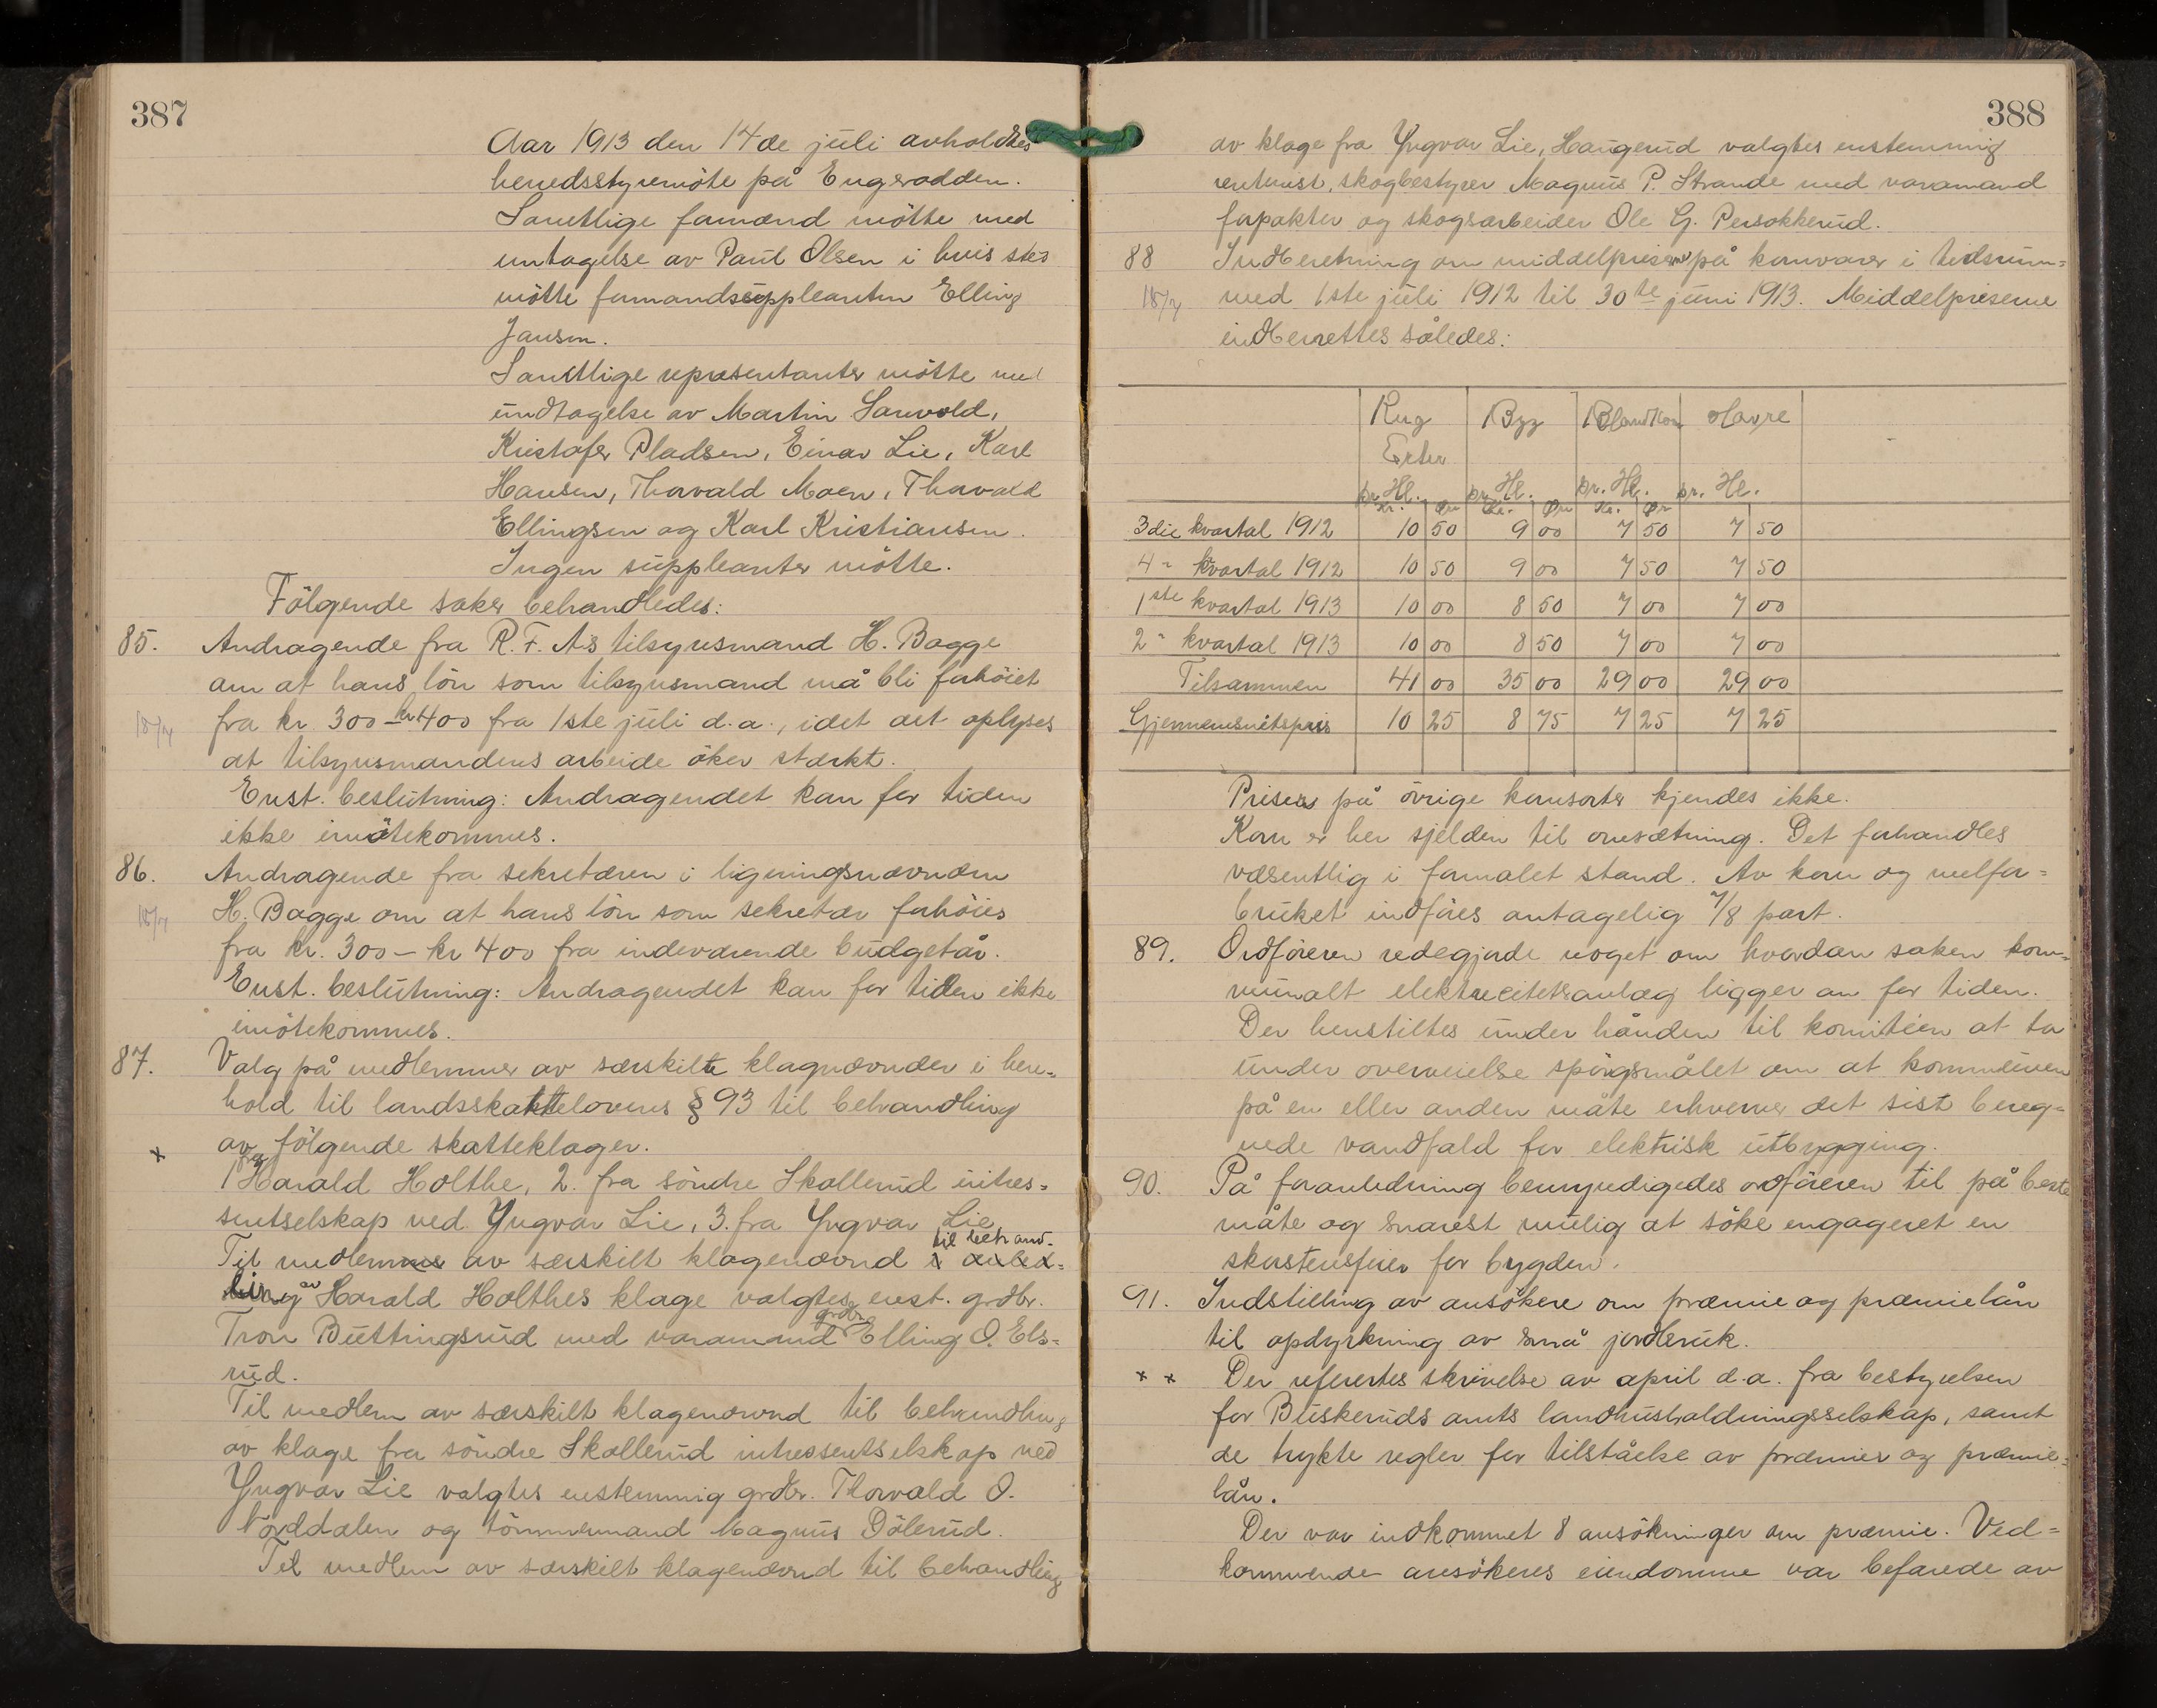 387
Aar 1913 den 14de juli avholdtes
herredsstyremöte på Engerodden.
Samtlige formænd mötte med
untagelse av Paul Olsen i hvis sted
mötte formandssuppleanten Elling
Jansen.
Samtlige repræsentanter mötte med
undtagelse av Martin Sarvold,
Kristofer Pladsen, Einar Lie, Karl
Hansen, Thorvald Moen, Thorvald
Ellingsen og Karl Kristiansen.
Ingen suppleanter mötte.
Fölgende saker behandledes:
85. Andragende fra R. F. A's tilsynsmand H. Bagge
om at hans lön som tilsynsmand må bli forhöiet
18/7 fra kr. 300 – kr 400 fra 1ste juli d.a., idet det oplyses
at tilsynsmandens arbeide öker stærkt.
Enst. beslutning: Andragendet kan for tiden
ikke imötekommes.
86. Andragende fra sekretæren i ligningsnævnden
18/7 H. Bagge om at hans lön som sekretær forhöies
fra kr. 300 – kr 400 fra indeværende budgetår.
Enst. beslutning: Andragendet kan for tiden ikke
imötekommes.
87. Valg på medlemmer av særskilte klagnævnder i hen-
hold til landsskattelovens § 93 til behandling
x av fölgende skatteklager.
1 fra Harald Holthe, 2. fra söndre Skollerud intres-
sentselskap ved Yngvar Lie, 3. fra Yngvar Lie.
Til medlem av særskilt klagenævnd til behand-
ling av Harald Holthes klage valgtes enst. grdbr.
Tron Buttingsrud med varamand grdbr. Elling O. Els-
rud.
Til medlem av særskilt klagenævnd til behandling
av klage fra söndre Skollerud intressentselskap ved
Yngvar Lie valgtes enstemmig grdbr. Thorvald O.
Norddalen og tömmermand Magnus Dölerud.
Til medlem av særskilt klagenævnd til behandling
388
av klage fra Yngvar Lie, Haugerud valgtes enstemmig
skogbestyrer Magnus P. Strande med varamand
forpakter og skogsarbeider Ole G. Persokkerud.
88 Indberetning om middelprisen på kornvarer i tidsrum-
18/7 med 1ste juli 1912 til 30te juni 1913. Middelpriserne
indberettes således:
Rug Byg Blandkorn Havre
Erter
pr. Hl. pr. Hl. pr. Hl. pr. Hl.
Kr. Ør Kr. Ør Kr. Ør
3die kvartal 1912 10 50 9 00 7 50 7 50
4 " kvartal 1912 10 50 9 00 7 50 7 50
1ste kvartal 1913 10 00 8 50 7 00 7 00
2 " kvartal 1913 10 00 8 50 7 00 7 00
Tilsammen 41 00 35 00 29 00 29 00
Gjennemsnitspris 10 25 8 75 7 25 7 25
Prisen på övrige kornsorter kjendes ikke.
Korn er her sjelden til omsætning. Det forhandles
væsentlig i formalet stand. Av korn og melfor-
bruket indföres antagelig 7/8 part.
89. Ordföreren redegjorde noget om hvordan saken kom-
munalt elektricitetsanlæg ligger an for tiden.
Der henstiltes under hånden til komitéen at ta
under overveielse spörgsmålet om at kommunen
på en eller anden måte erhverver det sist bereg-
nede vandfald for elektrisk utbygging.
90. På foranledning bemyndigedes ordföreren til på beste
måte og snarest mulig at söke engageret en
skorstensfeier for bygden.
91. Indstilling av ansökere om præmie og præmielån
til opdyrkning av små jordbruk.
x x Der referertes skrivelse av april d.a. fra bestyrelsen
for Buskeruds amts landhusholdningsselskap, samt
de trykte regler for tilståelse av præmier og præmie-
lån.
Der var indkommet 8 ansökninger om præmie. Ved-
kommende ansökeres eiendomme var befarede av